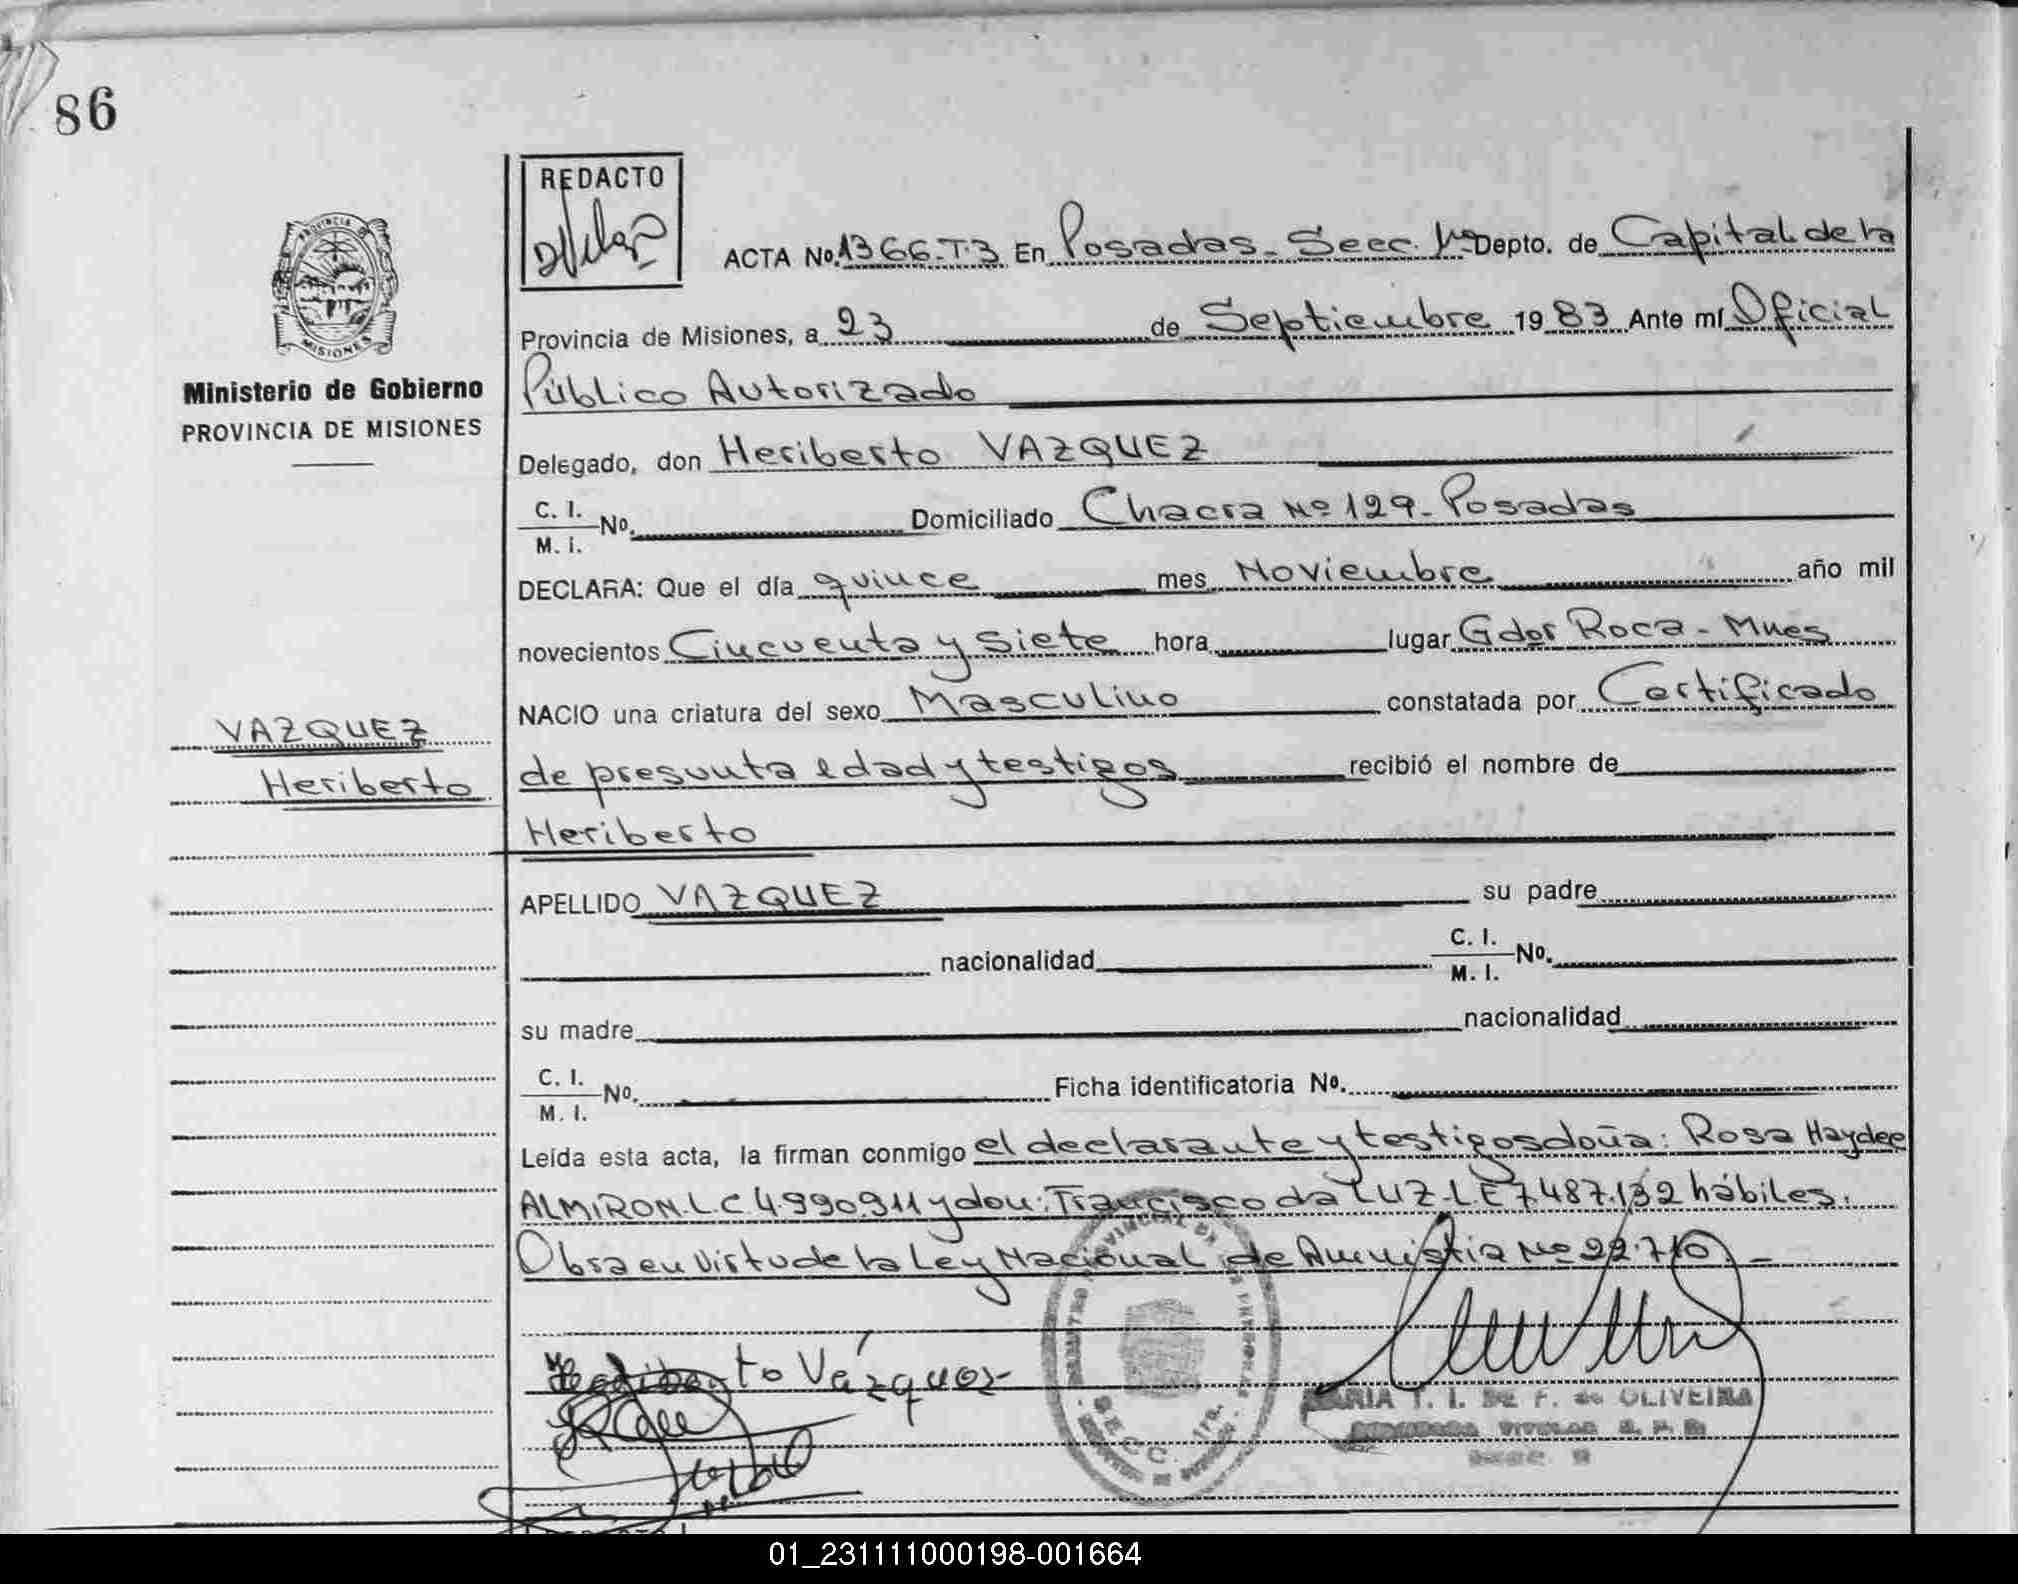 86
REDACTO
PROVINCIA DE
MISIONES
Ministerio de Gobierno
PROVINCIA DE MISIONES
VAZQUEZ
Heriberto
ACTA No. 1366-T-3 En Posadas - Secc. 1ra Depto. de Capital de la
Provincia de Misiones, a 23 de Septiembre 1983 Ante mí Oficial
Público Autorizado
Delegado, don Heriberto VAZQUEZ
C. I. / M. I. No. Domiciliado Chacra Nº 129 - Posadas
DECLARA: Que el día quince mes Noviembre año mil
novecientos Cincuenta y Siete hora lugar Gdor Roca - Mnes
NACIO una criatura del sexo Masculino constatada por Certificado
de presunta edad y testigos recibió el nombre de
Heriberto
APELLIDO VAZQUEZ su padre
nacionalidad C. I. / M. I. No.
su madre nacionalidad
C. I. / M. I. No. Ficha identificatoria No.
Leída esta acta, la firman conmigo el declarante y testigos doña: Rosa Haydee
ALMIRON L.C 4.990.911 y don: Francisco da LUZ - L.E 7.487.132 hábiles.
Obra en virtu de la Ley Nacional de Amnistia Nº 22.710 -
Heriberto Vázquez
SECC. 1ra.
MARIA T. I. DE F. de OLIVEIRA
01_231111000198-001664